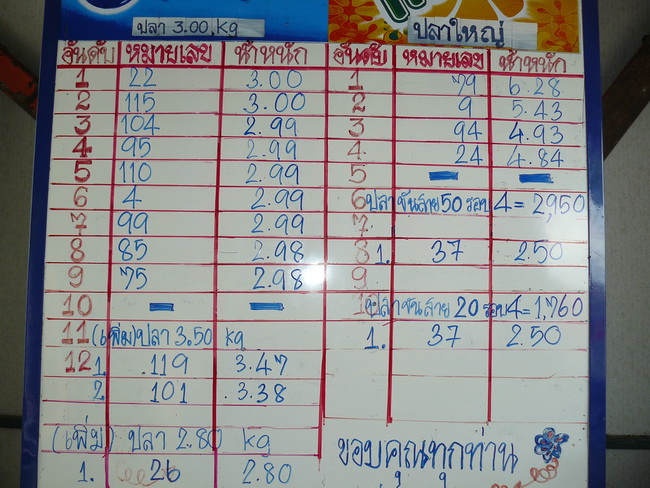 ปลา 3.00 kg
อันดับ หมายเลข น้ำหนัก
1 22 3.00
2 115 3.00
3 104 2.99
4 95 2.99
5 110 2.99
6 4 2.99
7 99 2.99
8 85 2.98
9 75 2.98
10 — —
11 (เพิ่ม) ปลา 3.50 kg
12 1. 119 3.47
2. 101 3.38
(เพิ่ม) ปลา 2.80 kg
1. 26 2.80
ปลาใหญ่
อันดับ หมายเลข น้ำหนัก
1 79 6.28
2 9 5.43
3 94 4.93
4 24 4.84
5 — —
6 ปลาชันสาย 50 รอบ 4 = 2,950
7
8 1. 37 2.50
9
10 ปลาชันสาย 20 รอบ 4 = 1,760
1. 37 2.50
ขอบคุณทุกท่าน